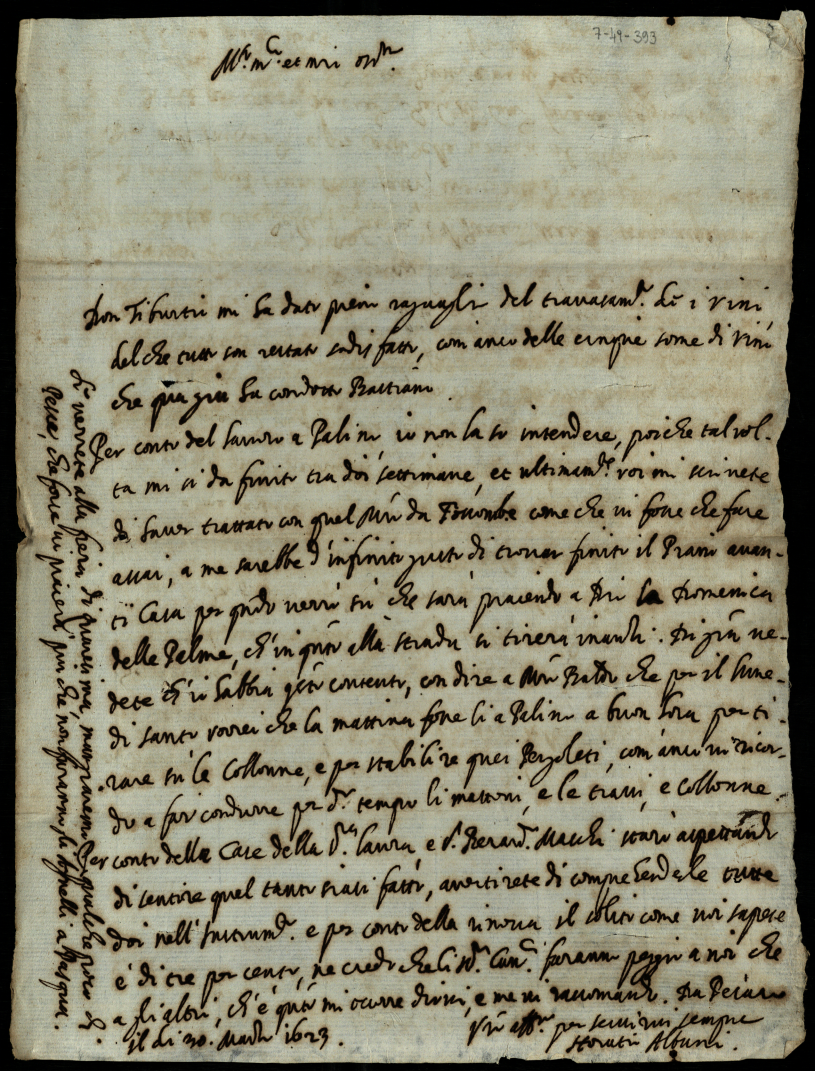 7-49-393
M.r m.c et mri oss.r
Don Tiburtio mi ha dato pieno raguaglio del travasam.to de i vini
del che tutto son restato sodisfatto, com'anco delle cinque some di vino
che qua giu ha condotto Bastiano
Per conto del lavoro a Palino io non la so intendere, poiche tal vol-
ta mi si da finito tra doi settimane, et ultimam.te voi mi scrivete
di haver trattato con quel M.ro da come che vi fosse che fare
assai, a me sarebbe d'infinito gusto di trovar finito il Piano avan-
ti Casa per q.n̄do verrò sù che sarà piacendo a Dio la Domenica
delle Palme, ch'in q.to alla strada si tirerà inanzi. Di già ve-
dete ch'io habbia q.to contento, con dire a M.ro che per il lune-
di santo vorrei che la mattina fosse li a Palino a buon hora per ti-
rare sù le Collonne, e per stabilire quei Pergoleti, com'anco vi ricor-
do a far condurre per d.o tempo li mattoni, e le travi, e collonne.
Per conto delle Case della S.ra Laura, e S.r Berard.o Maschi starò aspettando
di sentire quel tanto siasi fatto, avertirete di comprehenderle tutte
doi nell'Instrum.to e per conto della rinova il solito come voi sapete
è di tre per cento, ne credo che li S.ri Can.ci faranno peggio a noi che
a gli altri, ch'è q.to mi occorre dirvi, e me vi raccomando. Da Pesaro
il dì 30. Marzo 1623.
V.ro aff.mo per servirvi sempre
Horatio Albani.
Se verrete alla fiera di quaresima, mangiaremo qualche poco di
Pesce, che forse vi piacerà più che non faranno gli Agnelli a Pasqua.